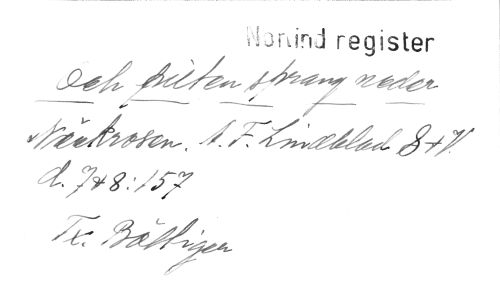 Nomind register
Och pilten sprang neder
Näckrosen. A. F. Lindblad S+V.
d. 7+8:157
Tx. Böttiger